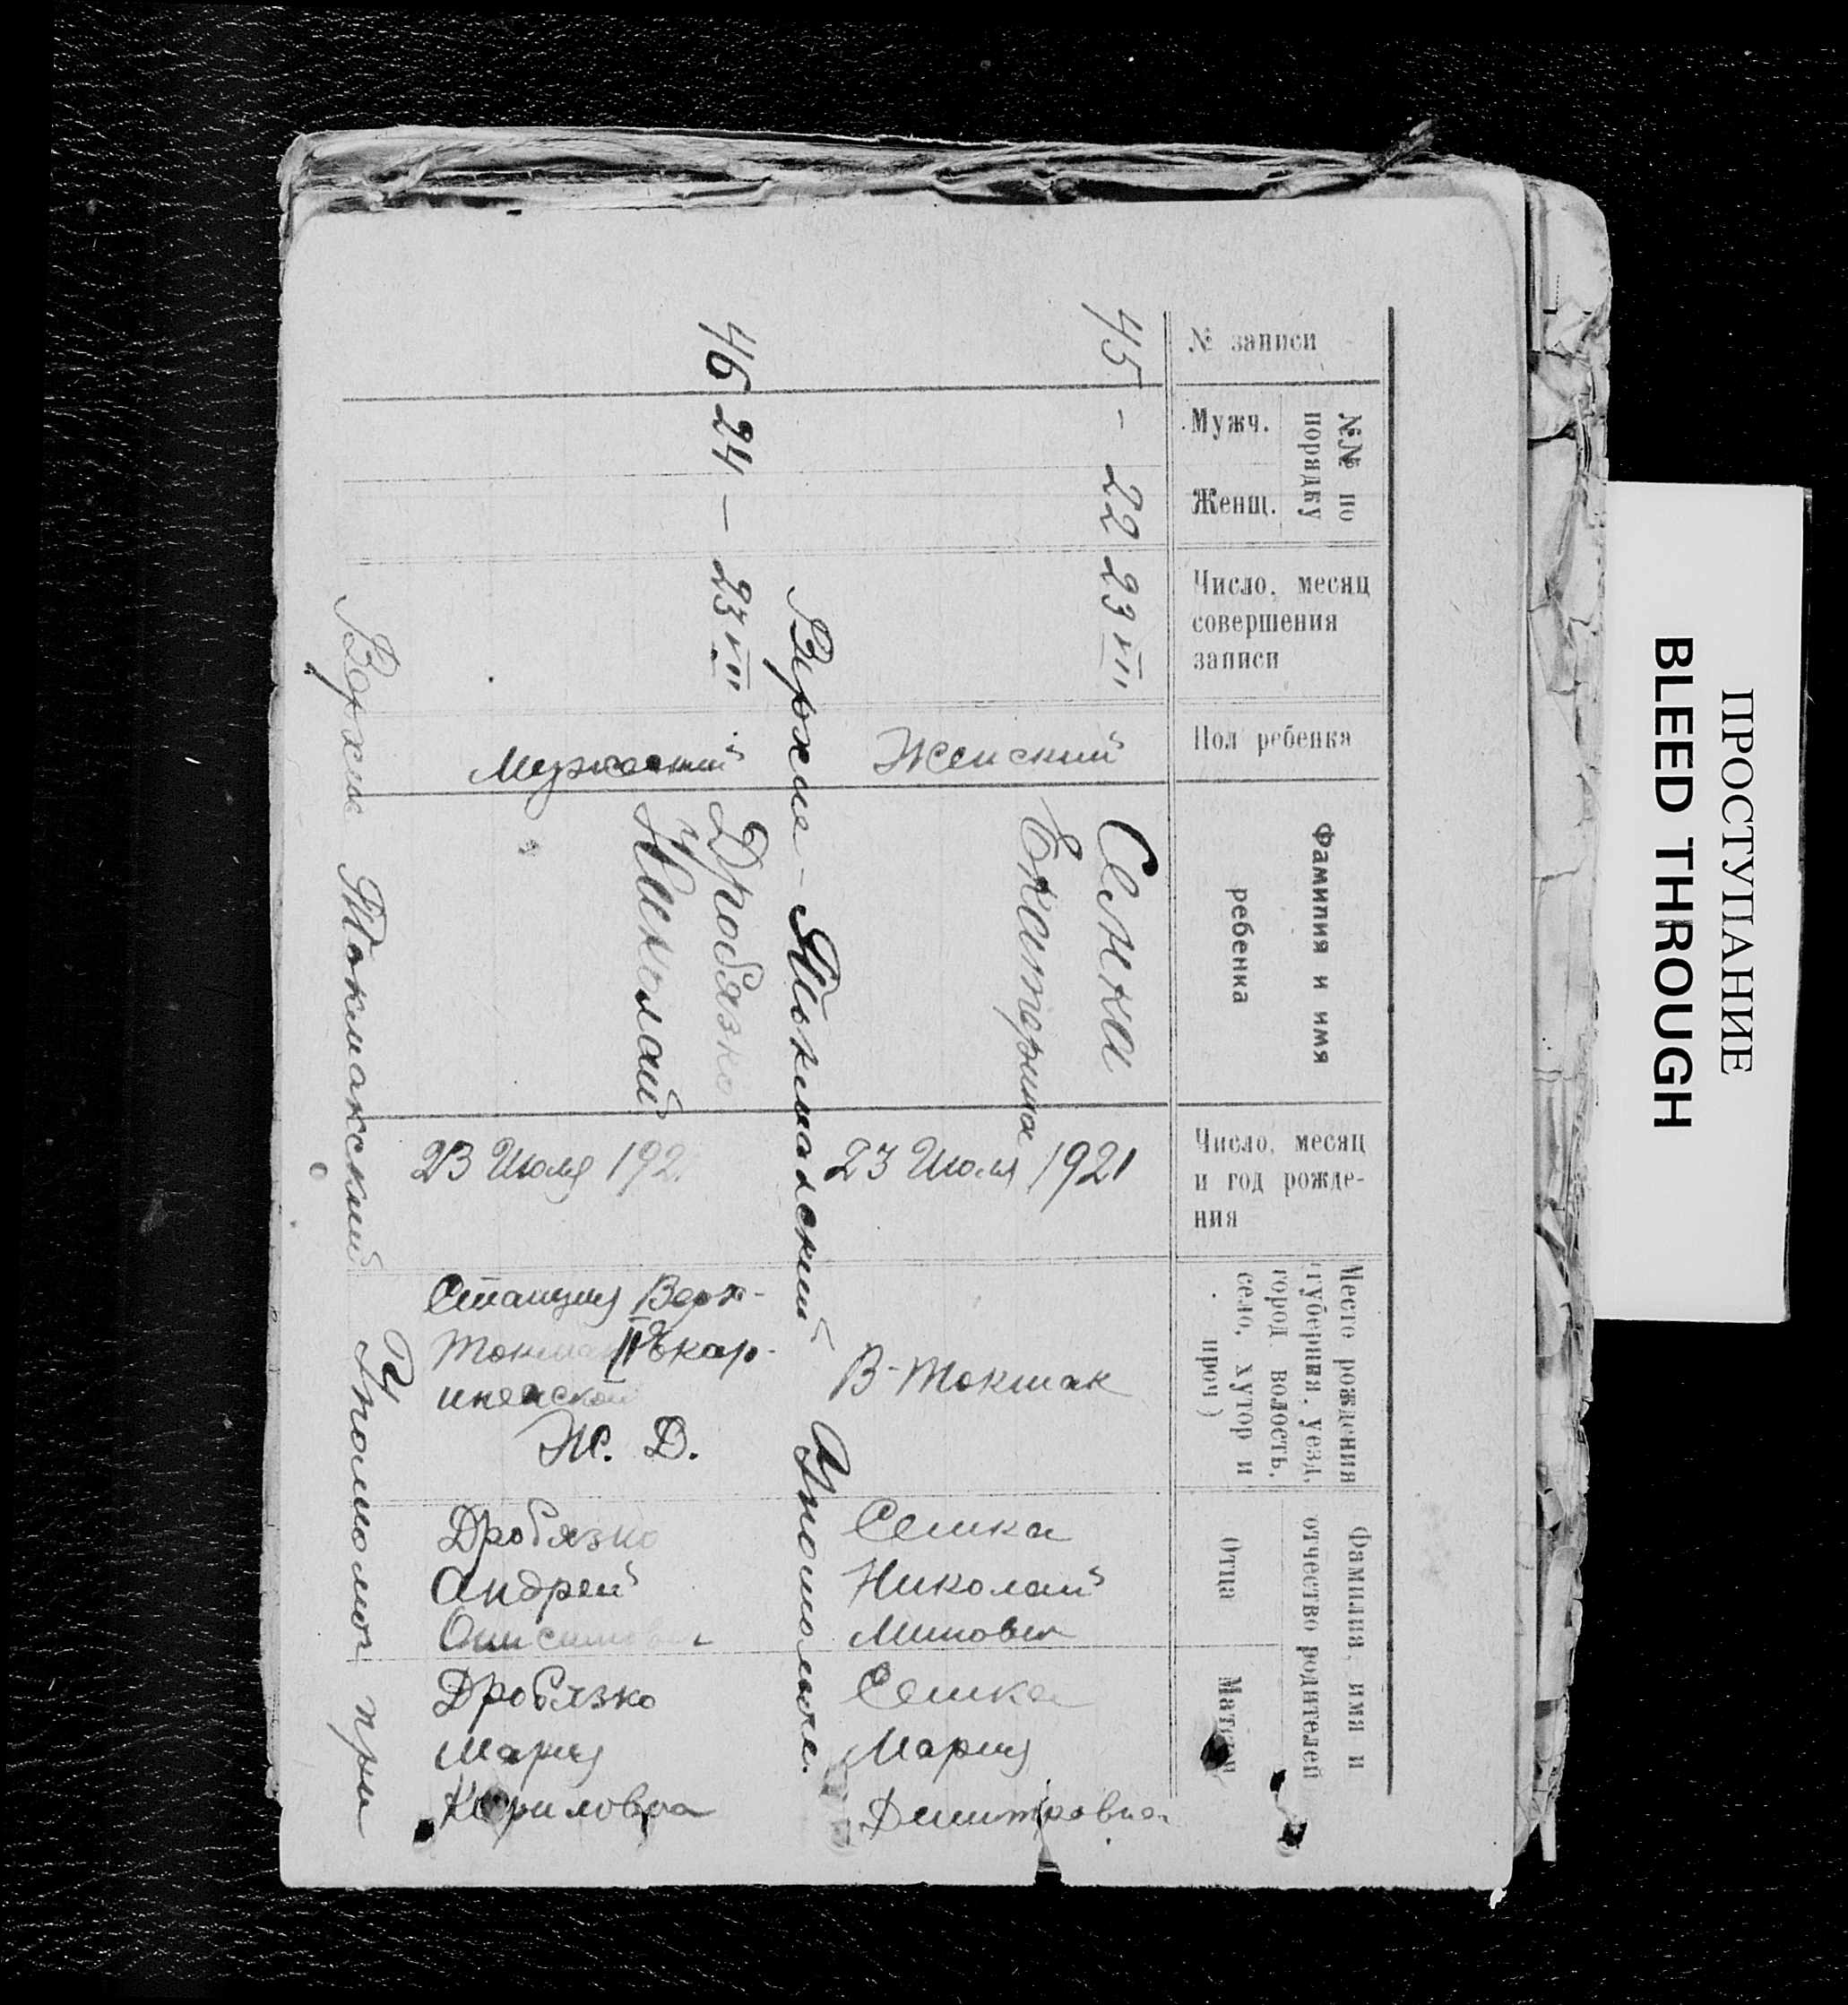 № записи
№№ по
порядку
Мужч.
Женщ.
Число, месяц
совершения
записи
Пол ребенка
Фамилия и имя
ребенка
Число, месяц
и год рожде-
ния
Место рождения
(губерния, уезд,
город волость,
село, хутор и
проч)
Фамилия, имя и
отчество родителей
Отца
Матери
45 - 22 23 VII
Женский
Семка
Екатерина
23 Июля 1921
В-Токмак
Семка
Николай
Минович
Семка
Мария
Дмитровна
Верхне-Токмакский Упольном.
46 24 - 23 VII
Мужеский
Дробязко
Николай
23 Июля 192
Станция Верх-
Токмак II Екар-
ининской
Ж. Д.
Дробязко
Андрей
Онисимович
Дробязко
Мария
Кириловна
Верхне Токмакский при
ПРОСТУПАНИЕ
BLEED THROUGH